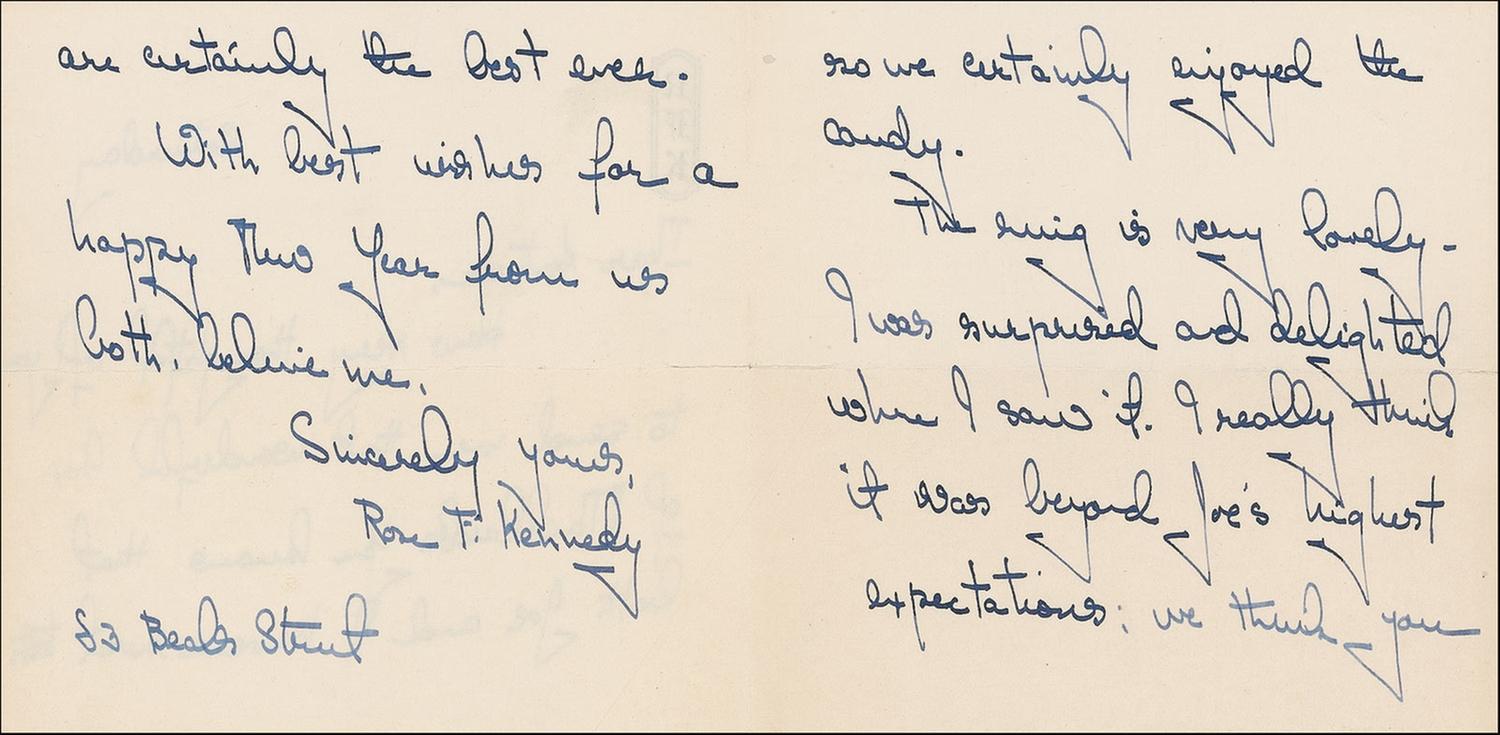 so we certainly enjoyed the
candy.
The ring is very lovely -
I was surprised and delighted
when I saw it. I really think
it was beyond Joe's highest
expectations; we think you
are certainly the best ever.
With best wishes for a
happy New Year from us
both, believe me,
Sincerely yours,
Rose F. Kennedy
83 Beals Street